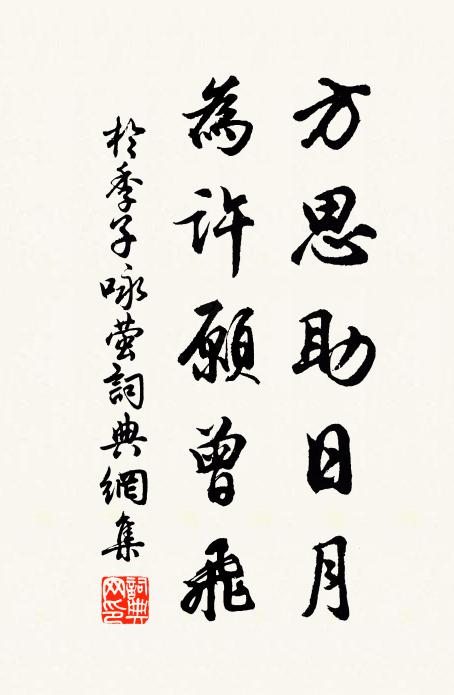 方思助日月
為許願曾飛
於季子咏螢詞典網集
詞典
网印